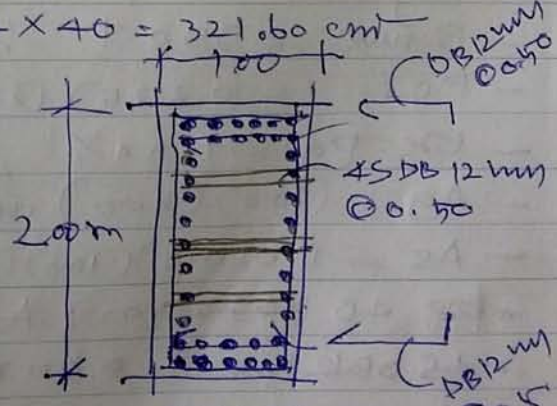 - X 40 = 321.60 cm²
1.00
DB12mm
@0.50
4S DB 12mm
@0.50
2.00m
DB12mm